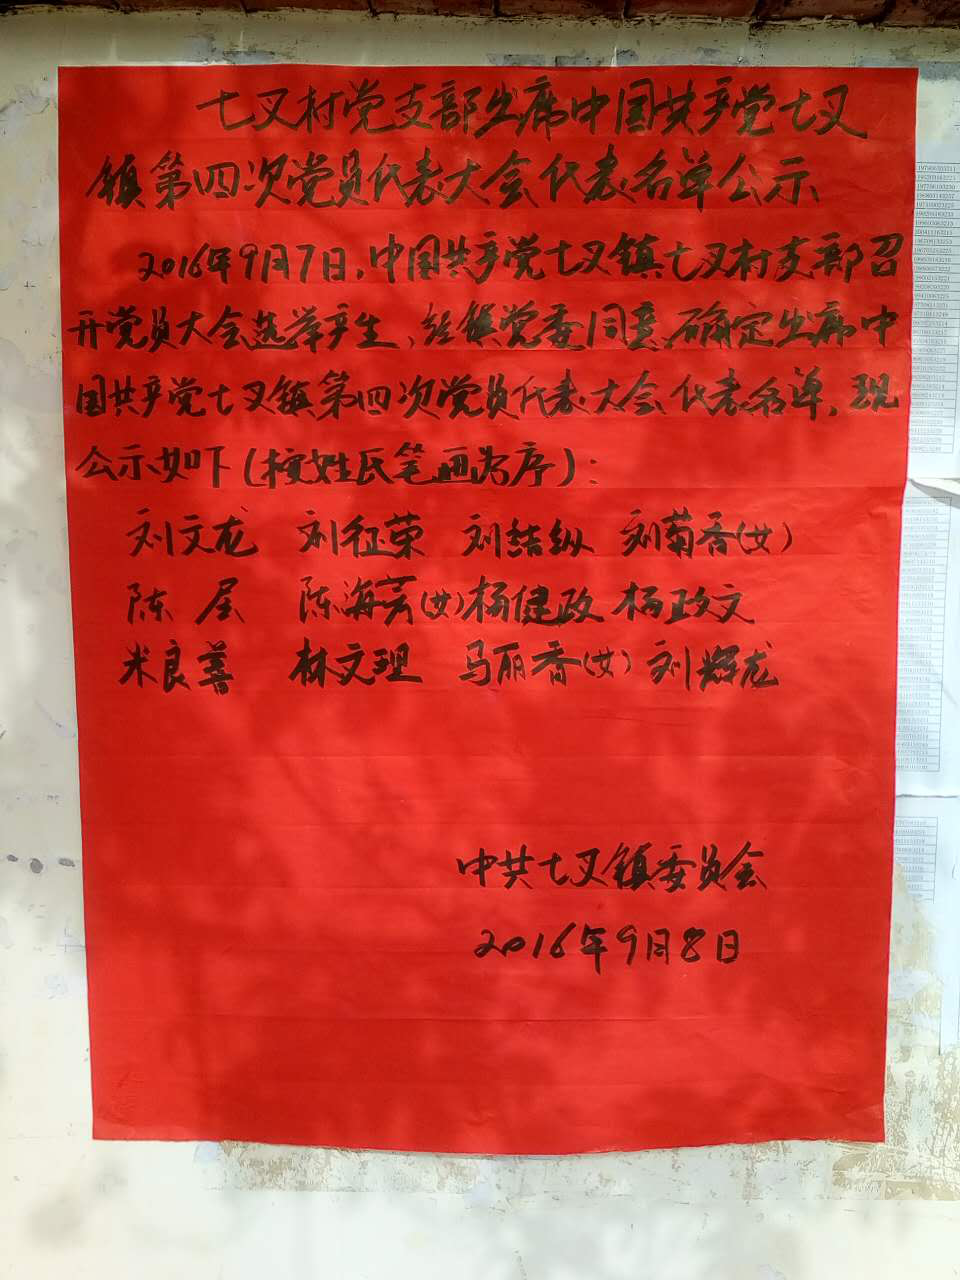 七叉村党支部出席中国共产党七叉
镇第四次党员代表大会代表名单公示
2016年9月7日,中国共产党七叉镇七叉村支部召
开党员大会选举产生,经镇党委同意,确定出席中
国共产党七叉镇第四次党员代表大会代表名单,现
公示如下(按姓氏笔画为序):
刘文龙 刘征荣 刘结纵 刘菊香(女)
陈 海芳(女) 杨健政 杨政文
米良善 林文理 马丽香(女) 刘辉龙
中共七叉镇委员会
2016年9月8日